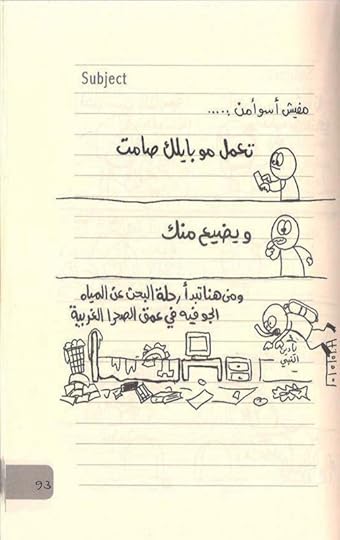 Subject
مفيش أسوأ من .....
تعمل موبايلك صامت
ويضيع منك
ومن هنا تبدأ رحلة البحث عن المياه
الجوفيه في عمق الصحرا الغربية
93